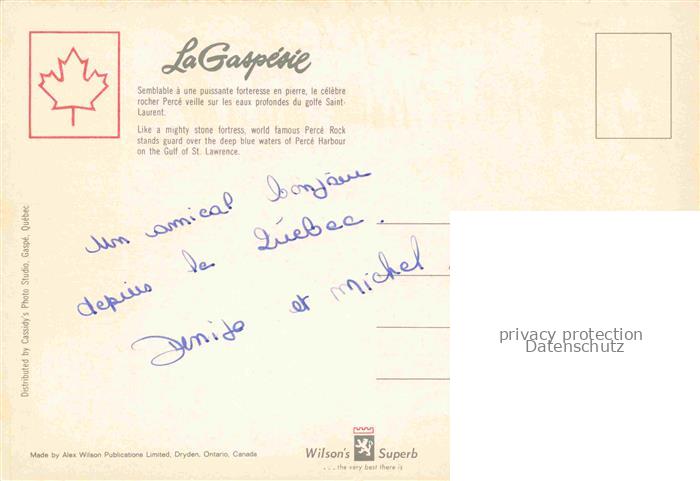 La Gaspésie
Semblable à une puissante forteresse en pierre, le célèbre
rocher Percé veille sur les eaux profondes du golfe Saint-
Laurent.
Like a mighty stone fortress, world famous Percé Rock
stands guard over the deep blue waters of Percé Harbour
on the Gulf of St. Lawrence.
Un amical bonjour
depuis le Québec.
Denise et Michel.
Distributed by Cassidy's Photo Studio, Gaspé, Québec
privacy protection
Datenschutz
Made by Alex Wilson Publications Limited, Dryden, Ontario, Canada
Wilson's Superb
...the very best there is